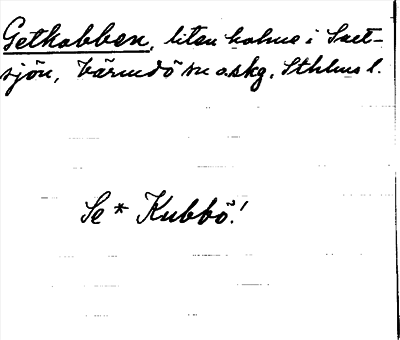 Getkobben, liten holme i Salt-
sjön, Värmdö sn o skg, Sthlms l.
Se * Kubbö!